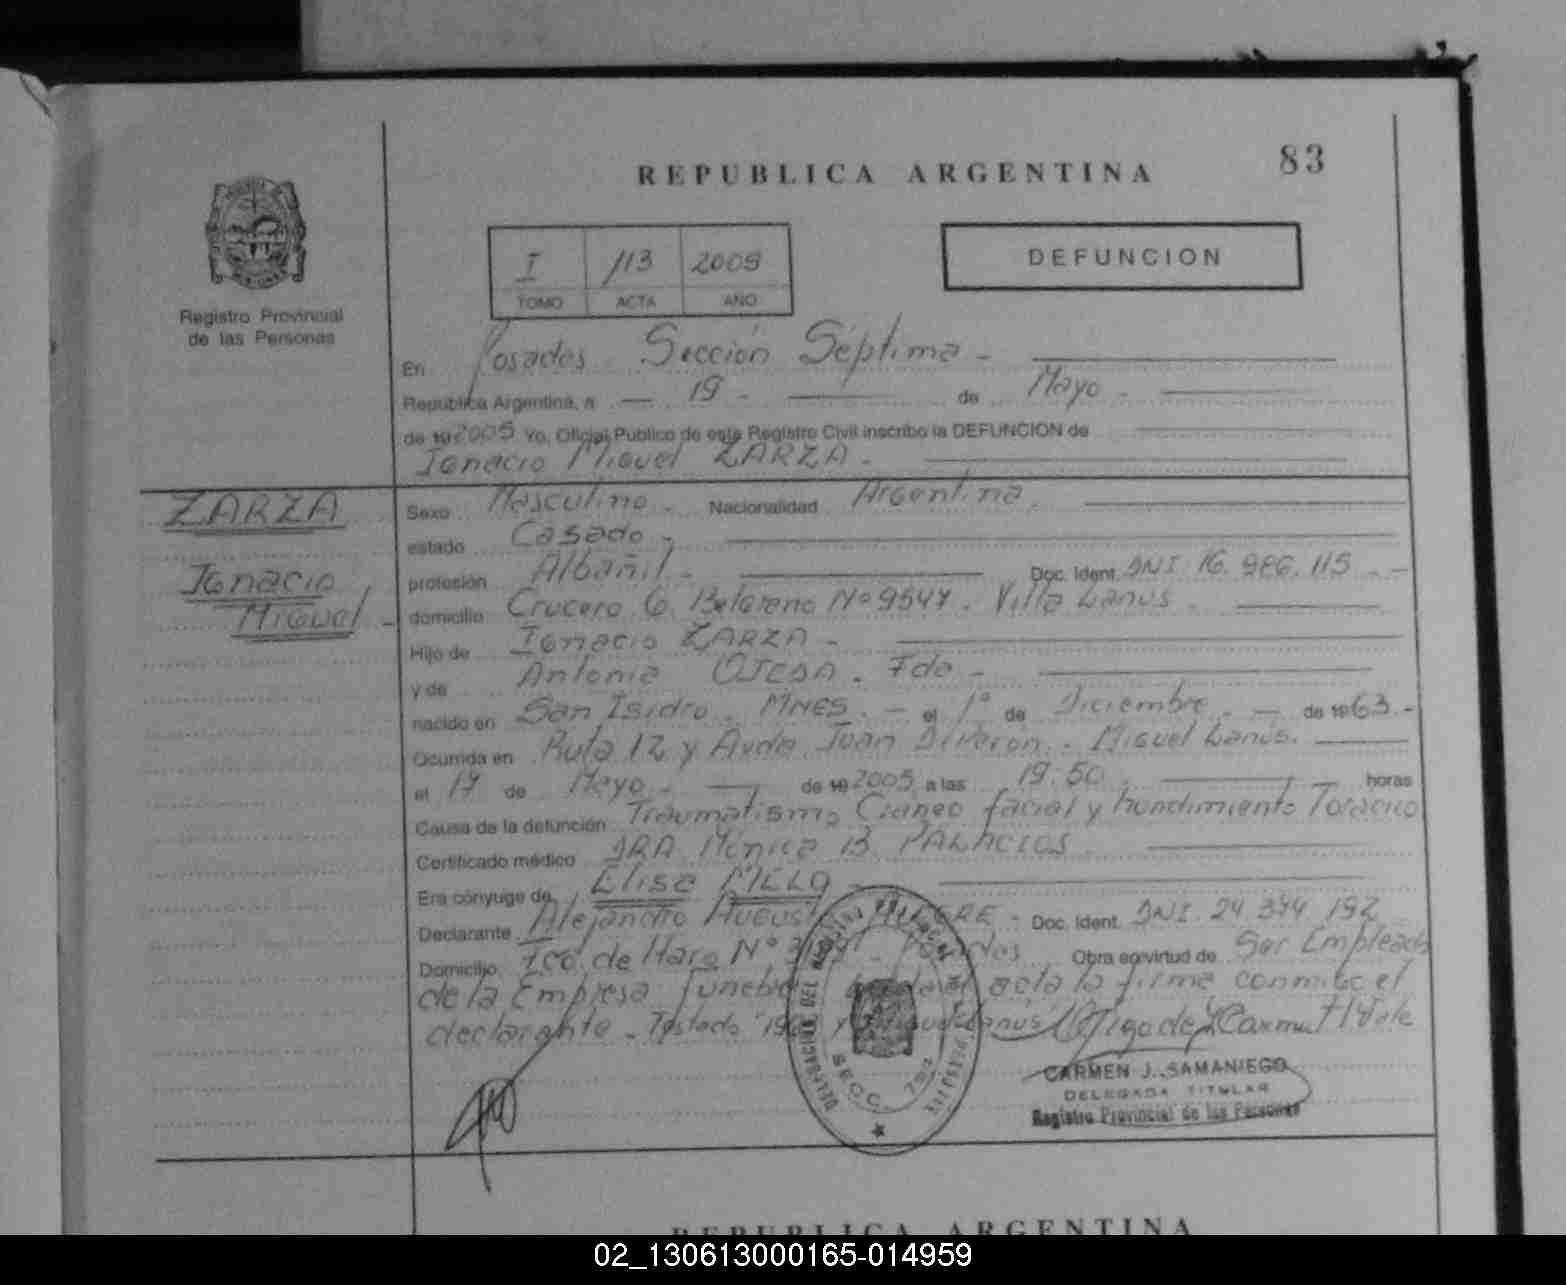 83
REPUBLICA ARGENTINA
I 113 2005
TOMO ACTA AÑO
DEFUNCION
Registro Provincial
de las Personas
En Posadas. Sección Séptima -
República Argentina, a — 19 - de Mayo -
de 19 2005 Yo, Oficial Público de este Registro Civil inscribo la DEFUNCION de
Ignacio Miguel ZARZA -
ZARZA
Ignacio
Miguel -
Sexo Masculino - Nacionalidad Argentina.
estado Casado -
profesión Albañil - Doc. Ident. DNI 16. 986. 115 - -
domicilio Crucero G. Belgrano Nº 9547. Villa Lanús.
Hijo de Ignacio ZARZA -
y de Antonia OJEDA. Fda -
nacido en San Isidro. MNES. - el 1º de Diciembre. - de 19 63.-
Ocurrida en Ruta 12 y Avda Juan D. Perón. Miguel Lanús.
el 17 de Mayo - de 19 2005 a las 19:50. horas
Causa de la defunción Traumatismo Craneo facial y hundimiento Toracico
Certificado médico DRA. Mónica B. PALACIOS
Era cónyuge de Elisa MELO -
Declarante Alejandro August - Doc. Ident. DNI. 24 394 192
Domicilio Fco. de Haro Nº Obra en virtud de Ser Empleado
de la Empresa funebre acta la firma conmigo el
declarante - Testado "19" y Lanús Carmen Vale
DELEGACION DEL
SECC. 7ma
CARMEN J. SAMANIEGO
DELEGADA TITULAR
Registro Provincial de las Personas
REPUBLICA ARGENTINA
02_130613000165-014959